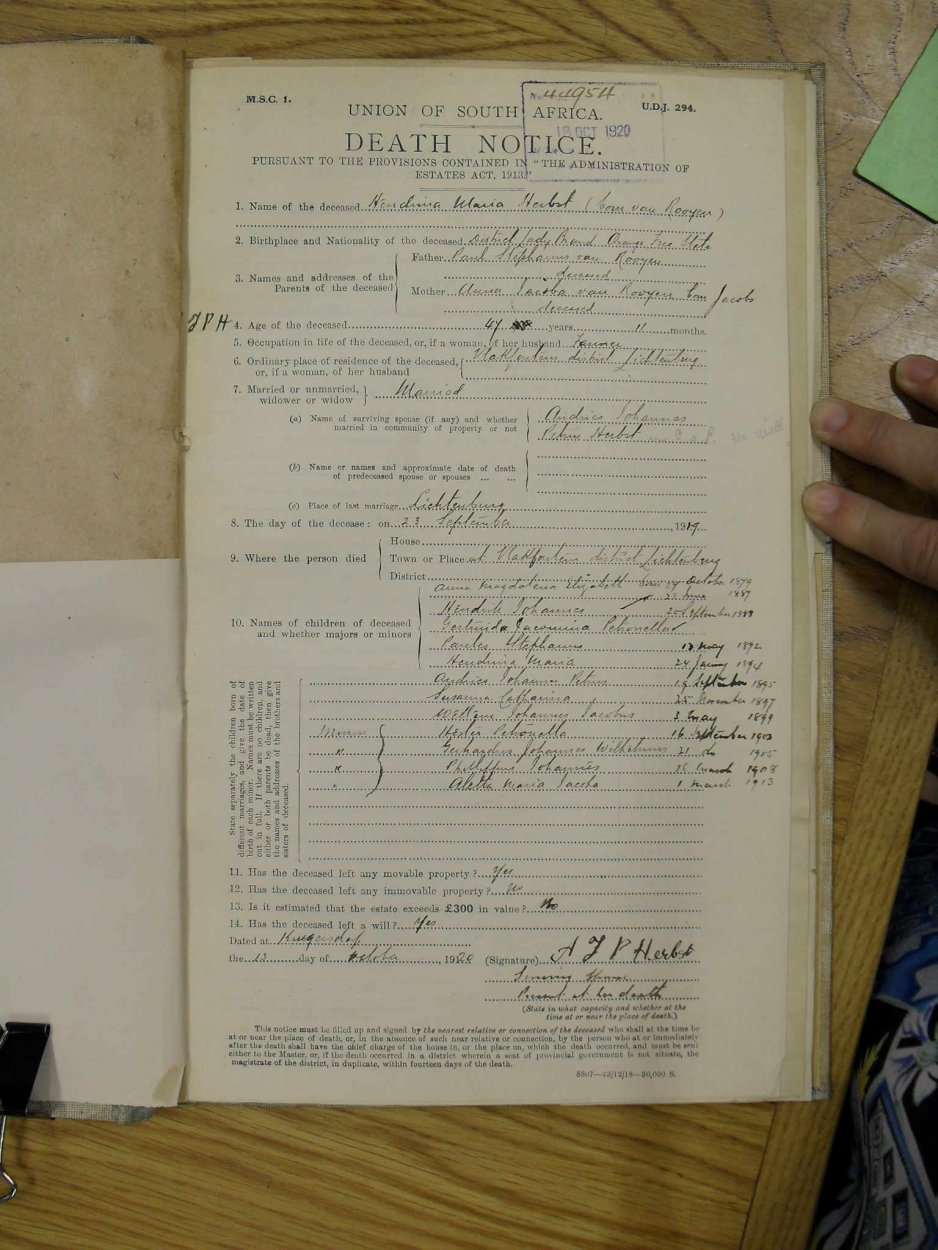 M.S.C. 1.
No. 44954
U.D.J. 294.
UNION OF SOUTH AFRICA.
18 OCT 1920
DEATH NOTICE.
PURSUANT TO THE PROVISIONS CONTAINED IN "THE ADMINISTRATION OF
ESTATES ACT, 1913."
1. Name of the deceased Hendrina Maria Herbst (born van Rooyen)
2. Birthplace and Nationality of the deceased District Lady Brand Orange Free State
3. Names and addresses of the Parents of the deceased
Father Paul Stephanus van Rooyen
deceased
Mother Anna Jacoba van Rooyen born Jacobs
deceased
4. Age of the deceased 47 years 11 months.
5. Occupation in life of the deceased, or, if a woman, of her husband Farmer
6. Ordinary place of residence of the deceased, or, if a woman, of her husband
Vlakfontein district Lichtenburg
7. Married or unmarried, widower or widow Married
(a) Name of surviving spouse (if any) and whether married in community of property or not
Andries Johannes
Petrus Herbst
(b) Name or names and approximate date of death of predeceased spouse or spouses ... ...
(c) Place of last marriage Lichtenburg
8. The day of the decease: on 23 September, 1919
9. Where the person died
House
Town or Place at Vlakfontein district Lichtenburg
District
10. Names of children of deceased and whether majors or minors
Anna Magdalena Elizabeth October 1879
1887
Hendrik Johannes 20 September 1888
Gertruida Jacomina Petronella
Paulus Stephanus 17 May 1892
Hendrina Maria 24 1894
State separately the children born of different marriages, and give the date of birth of each minor. Names must be written out in full. If there are no children, and either or both parents be dead, then give the names and addresses of the brothers and sisters of deceased.
Andries Johannes Petrus 19 September 1895
Susanna Catharina 25 November 1897
Willem Johannes Jacobus 3 May 1899
Minor Hester Petronella 16 September 1903
" Gerhardus Johannes Wilhelmus 21 do 1905
" Phillippus Johannes 18 March 1908
" Aletta Maria Jacoba 1 March 1913
11. Has the deceased left any movable property? Yes
12. Has the deceased left any immovable property?
13. Is it estimated that the estate exceeds £300 in value? No
14. Has the deceased left a will? Yes
Dated at Krugersdorp
the 13 day of October, 1920
(Signature) A J P Herbst
Surviving Spouse
Present at her death
(State in what capacity and whether at the
time at or near the place of death.)
This notice must be filled up and signed by the nearest relative or connection of the deceased who shall at the time be
at or near the place of death, or, in the absence of such near relative or connection, by the person who at or immediately
after the death shall have the chief charge of the house in, or the place on, which the death occurred, and must be sent
either to the Master, or, if the death occurred in a district wherein a seat of provincial government is not situate, the
magistrate of the district, in duplicate, within fourteen days of the death.
8807—23/12/18—30,000 S.